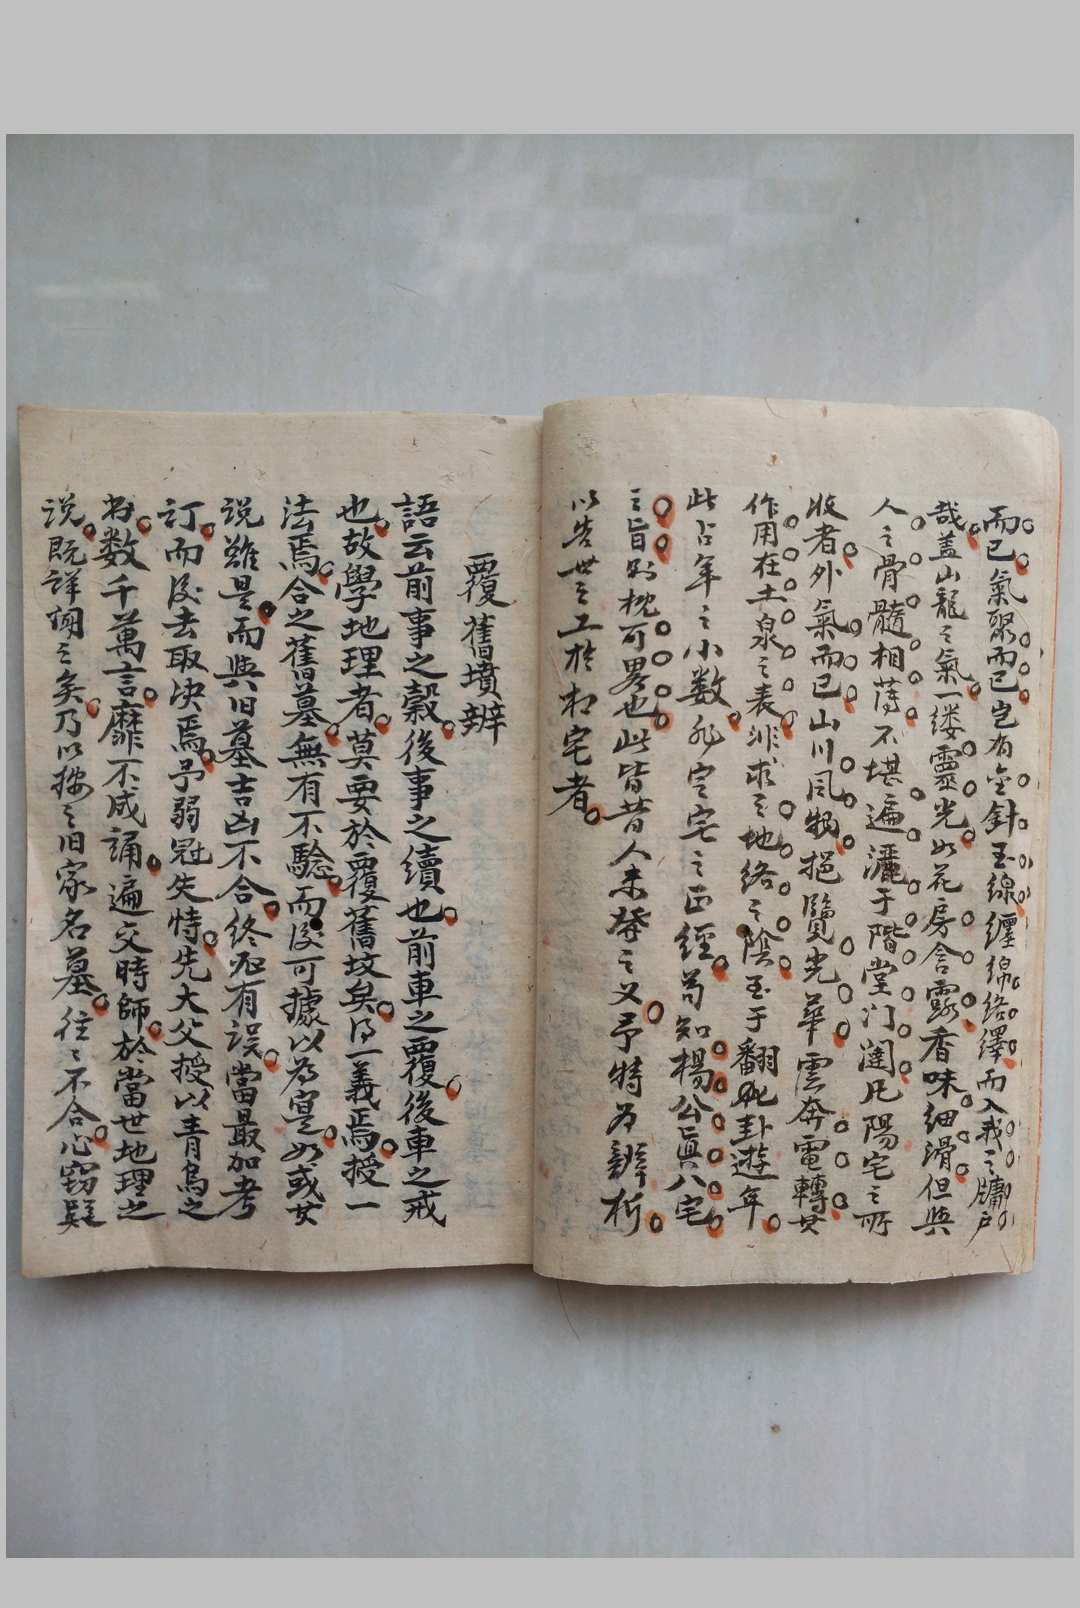 而已氣聚而已豈有金針玉線纏綿絡繹而入我之牖戶
哉盖山龍之氣一缕靈光如花房含露香味细滑但與
人之骨髓相薄不堪遍灑于階堂门闥凡陽宅之所
收者外氣而已山川風物挹覽光華雲奔電轉其
作用在土泉之表非求之地络之陰至于翻卦遊年
此占年之小数非定宅之正經苟知楊公真八宅
之旨则枕可畧也此皆昔人未發之义予特为辨析
以告世之工於相宅者
覆舊墳辨
語云前事之榖後事之續也前車之覆後車之戒
也故學地理者莫要於覆舊坟矣得一義焉授一
法焉合之舊墓無有不驗而後可據以为寔如或其
说雖是而與旧墓吉凶不合终必有误當最加考
訂而後去取决焉予弱冠失恃先大父授以青烏之
书数千萬言靡不成誦遍交時師於當世地理之
说既詳言之矣乃以按之旧家名墓往之不合心竊疑